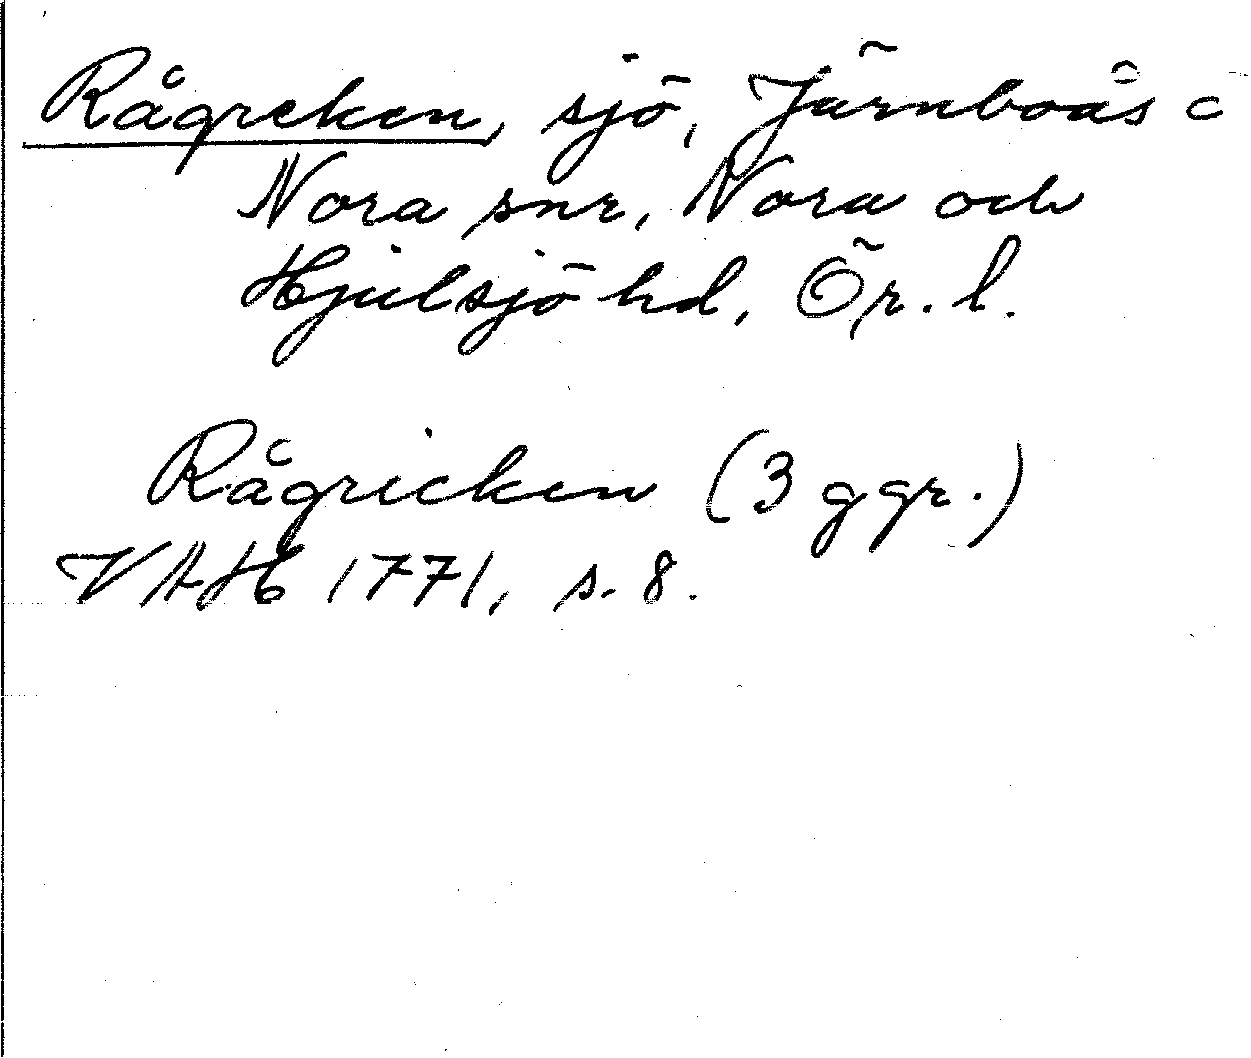 Rågreken, sjö, Järnboås c
Nora snr, Nora och
Hjulsjö hd, Ör. l.
Rågricken (3 ggr.)
VAH 1771, s. 8.